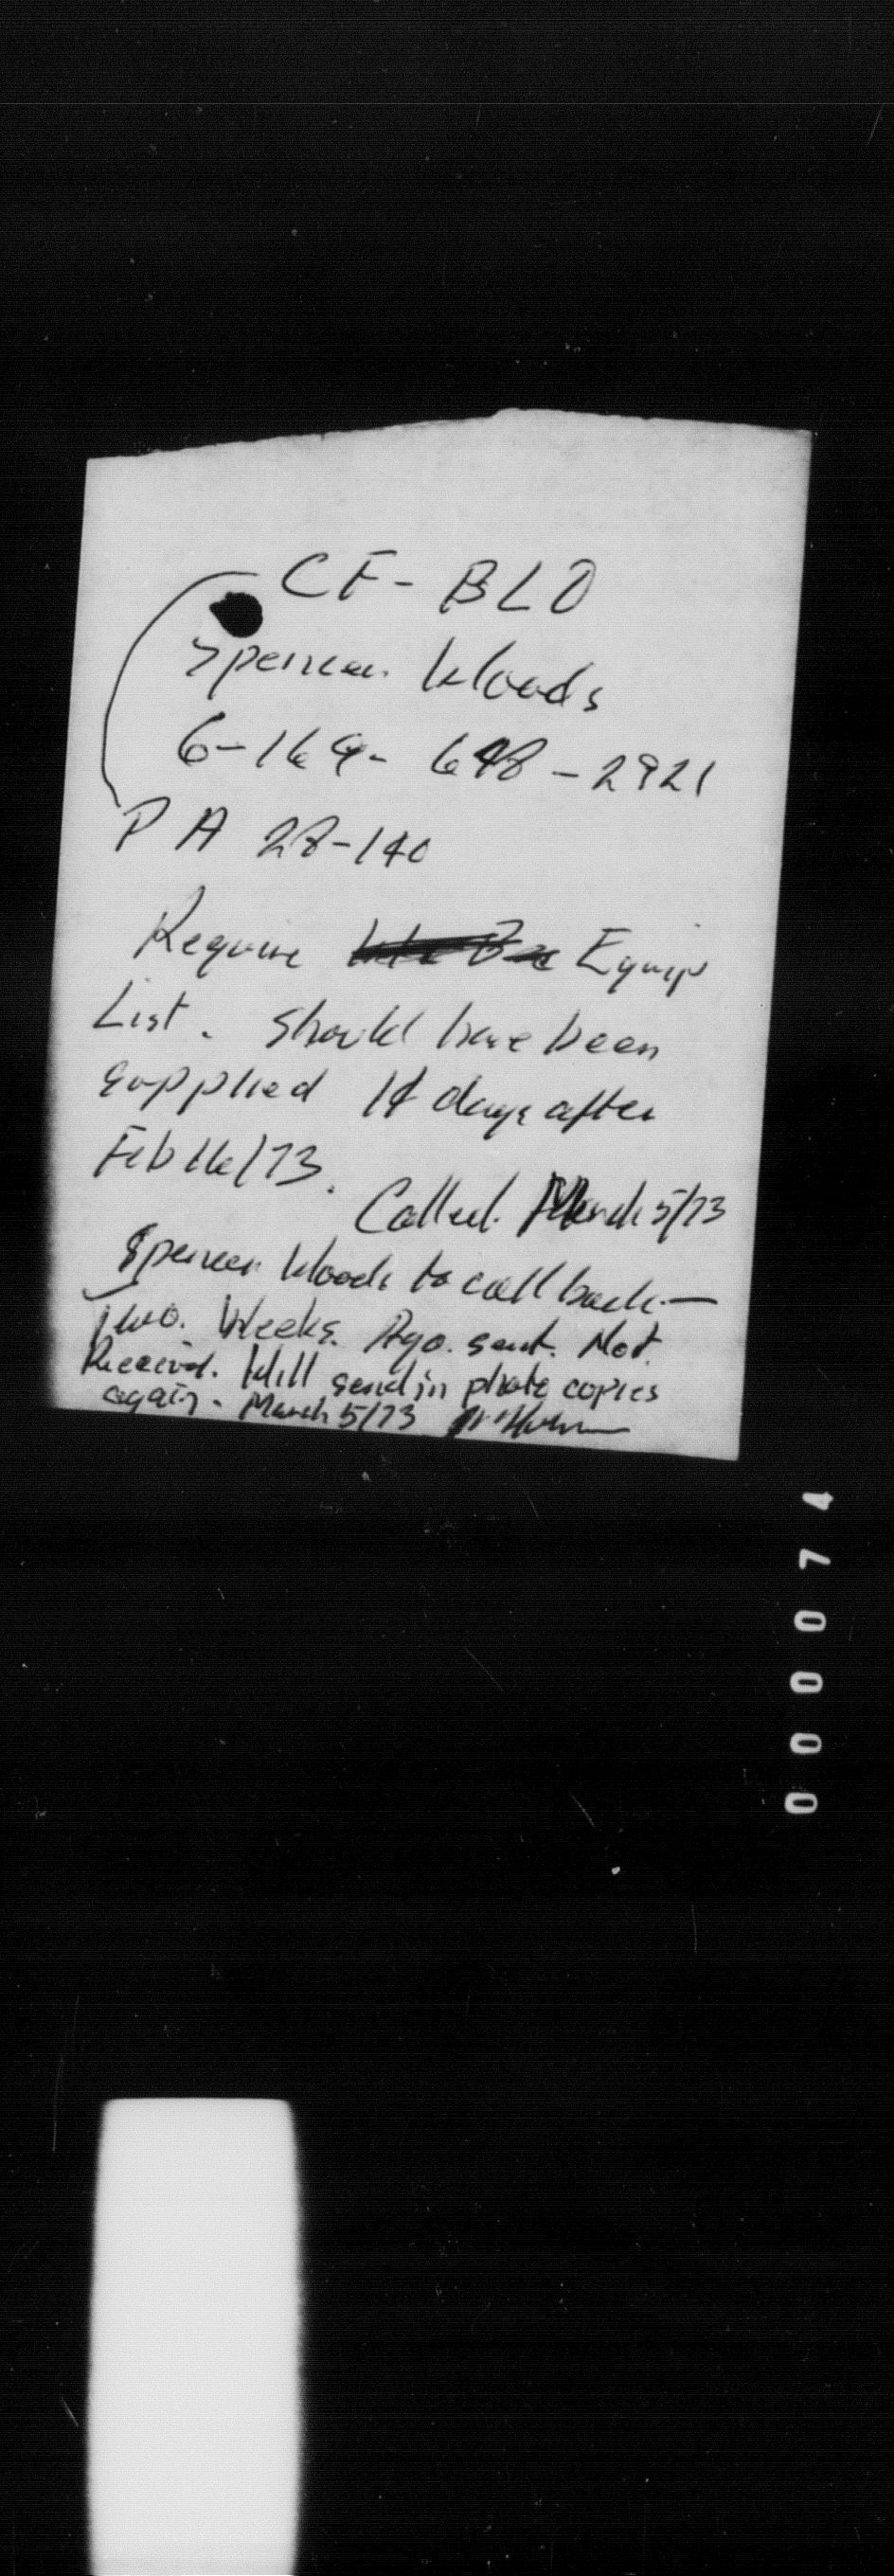 CF-BLO
Spencer Woods
6-169-648-2921
PA 28-140
Require Equip
List. Should have been
supplied 14 days after
Feb 16/73.
Called. March 5/73
Spencer Woods to call back -
Two. Weeks. Ago. sent. Not.
Received. Will send in photo copies
again - March 5/73
000074